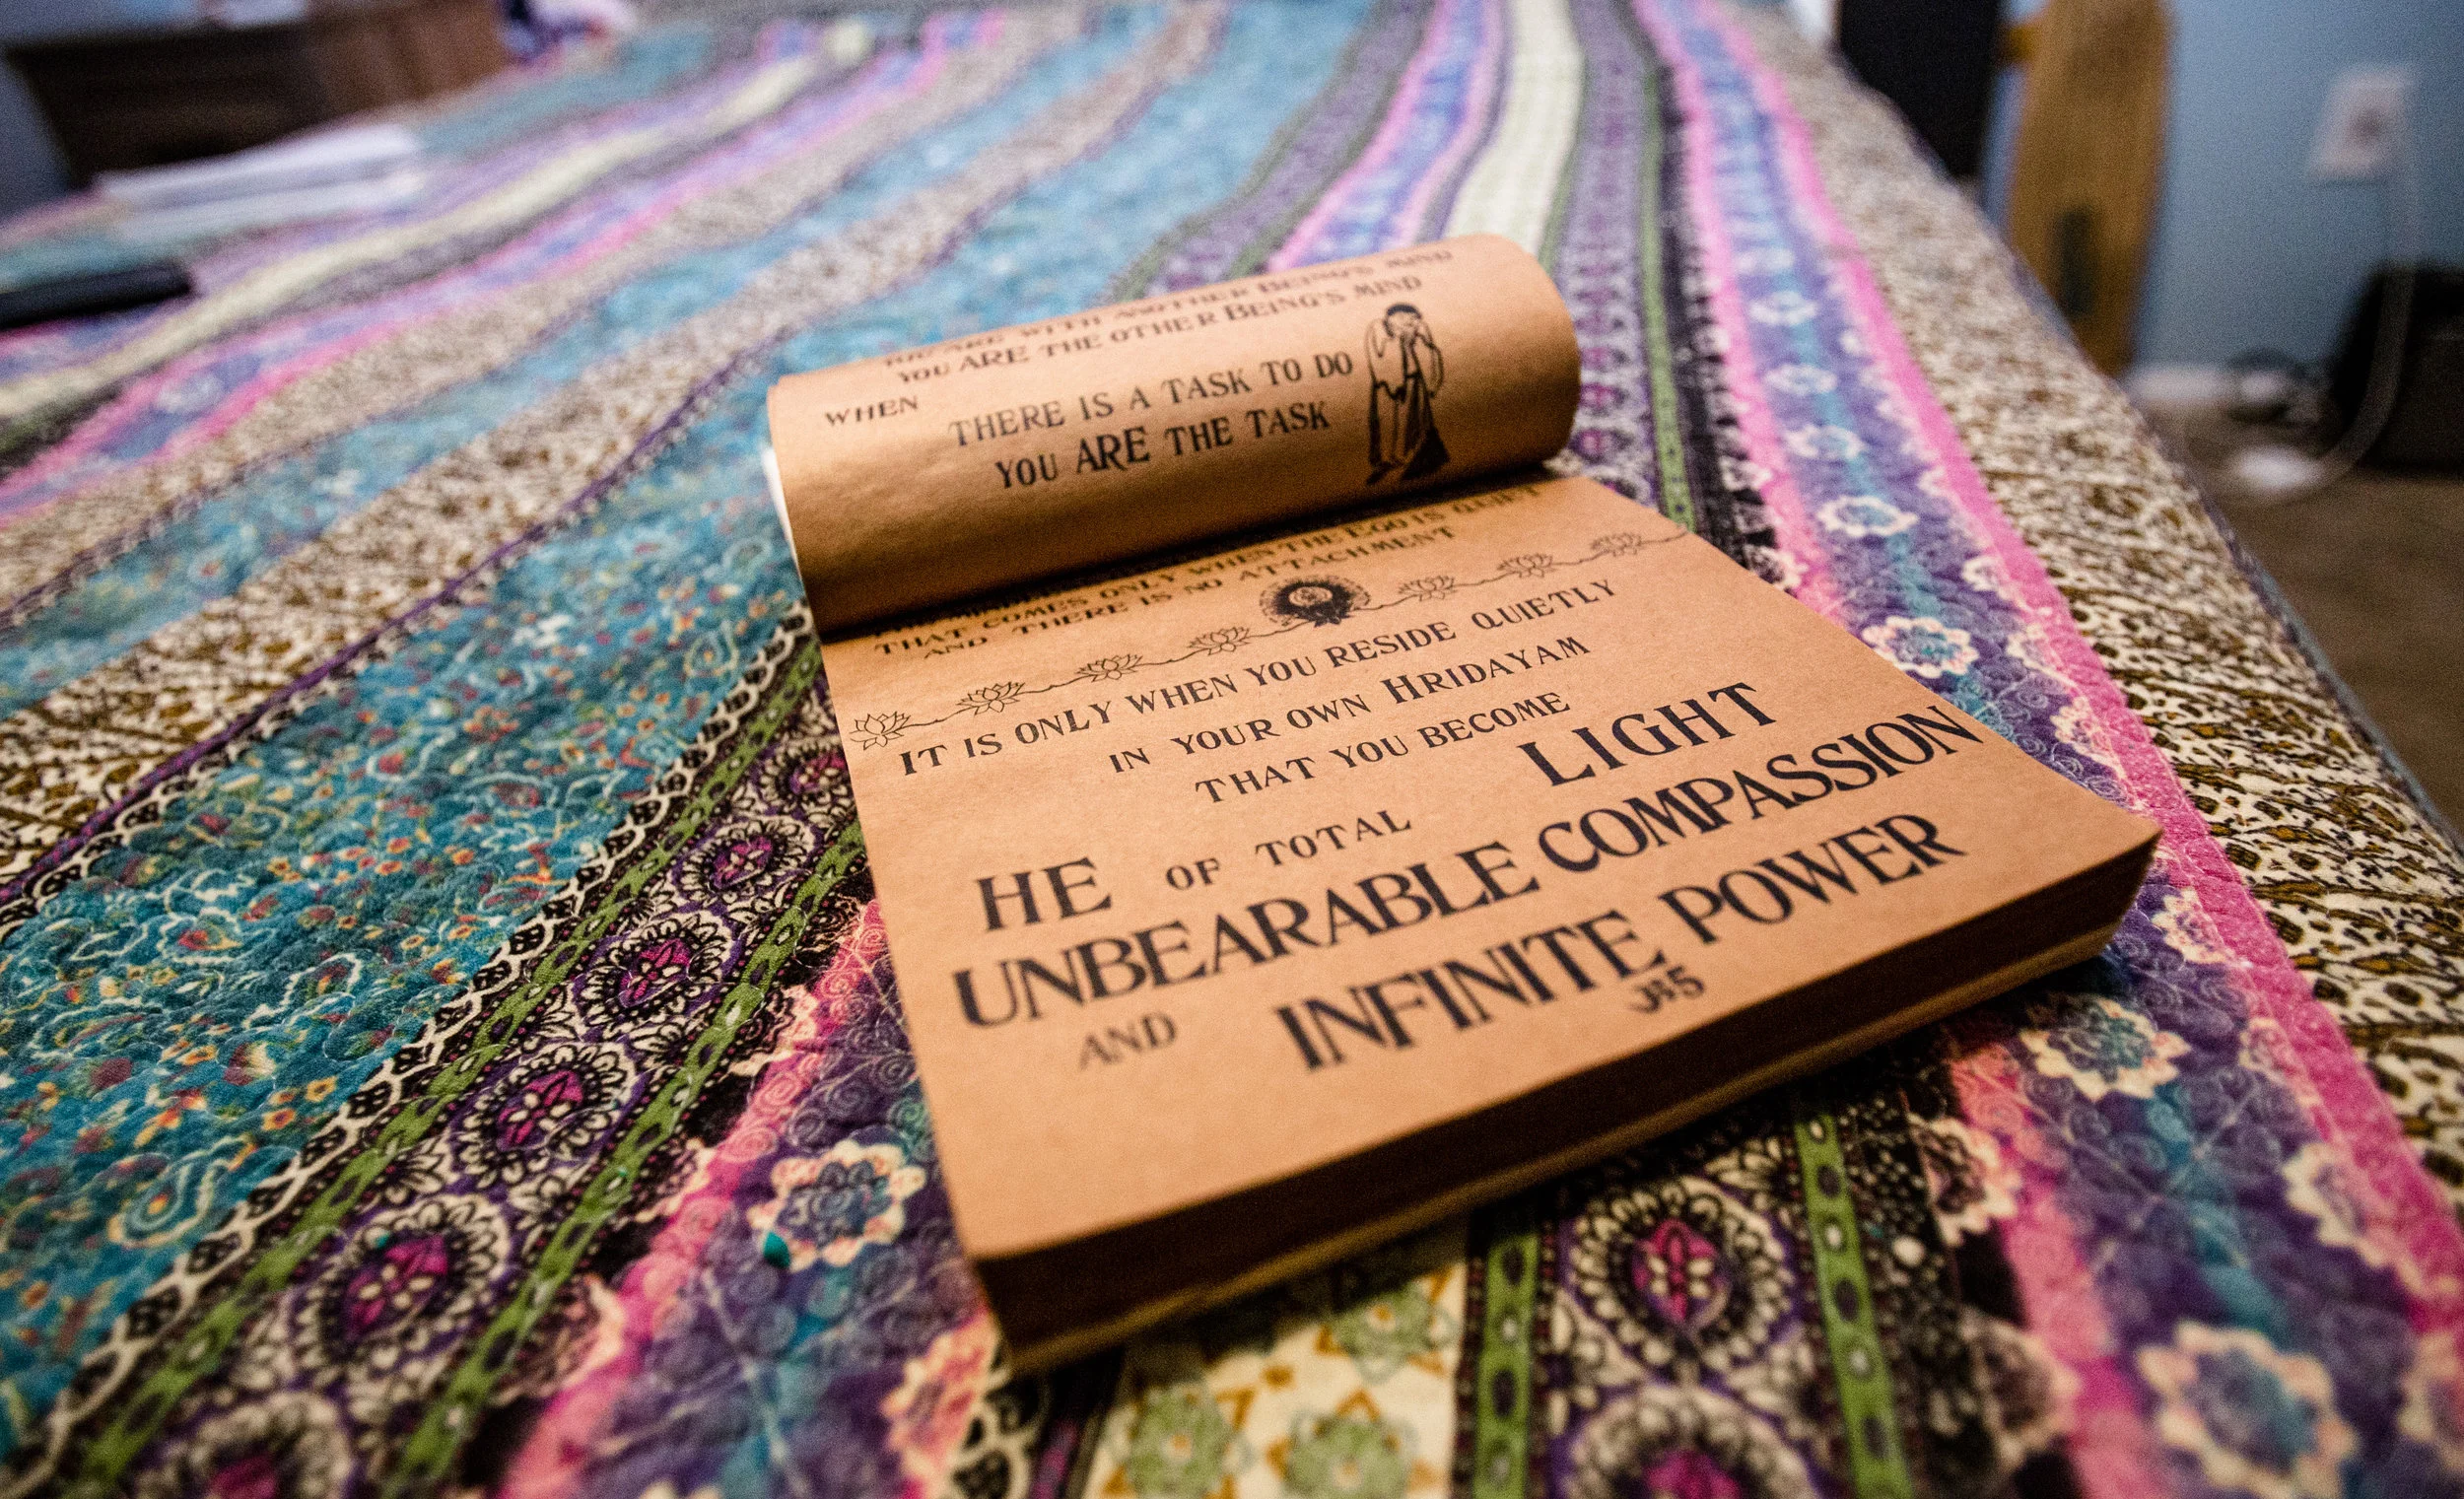 YOU ARE WITH ANOTHER BEING'S MIND
YOU ARE THE OTHER BEING'S MIND
WHEN THERE IS A TASK TO DO
YOU ARE THE TASK
THAT COMES ONLY WHEN THE EGO IS QUIET
AND THERE IS NO ATTACHMENT
IT IS ONLY WHEN YOU RESIDE QUIETLY
IN YOUR OWN HRIDAYAM
THAT YOU BECOME
HE OF TOTAL LIGHT
UNBEARABLE COMPASSION
AND INFINITE POWER